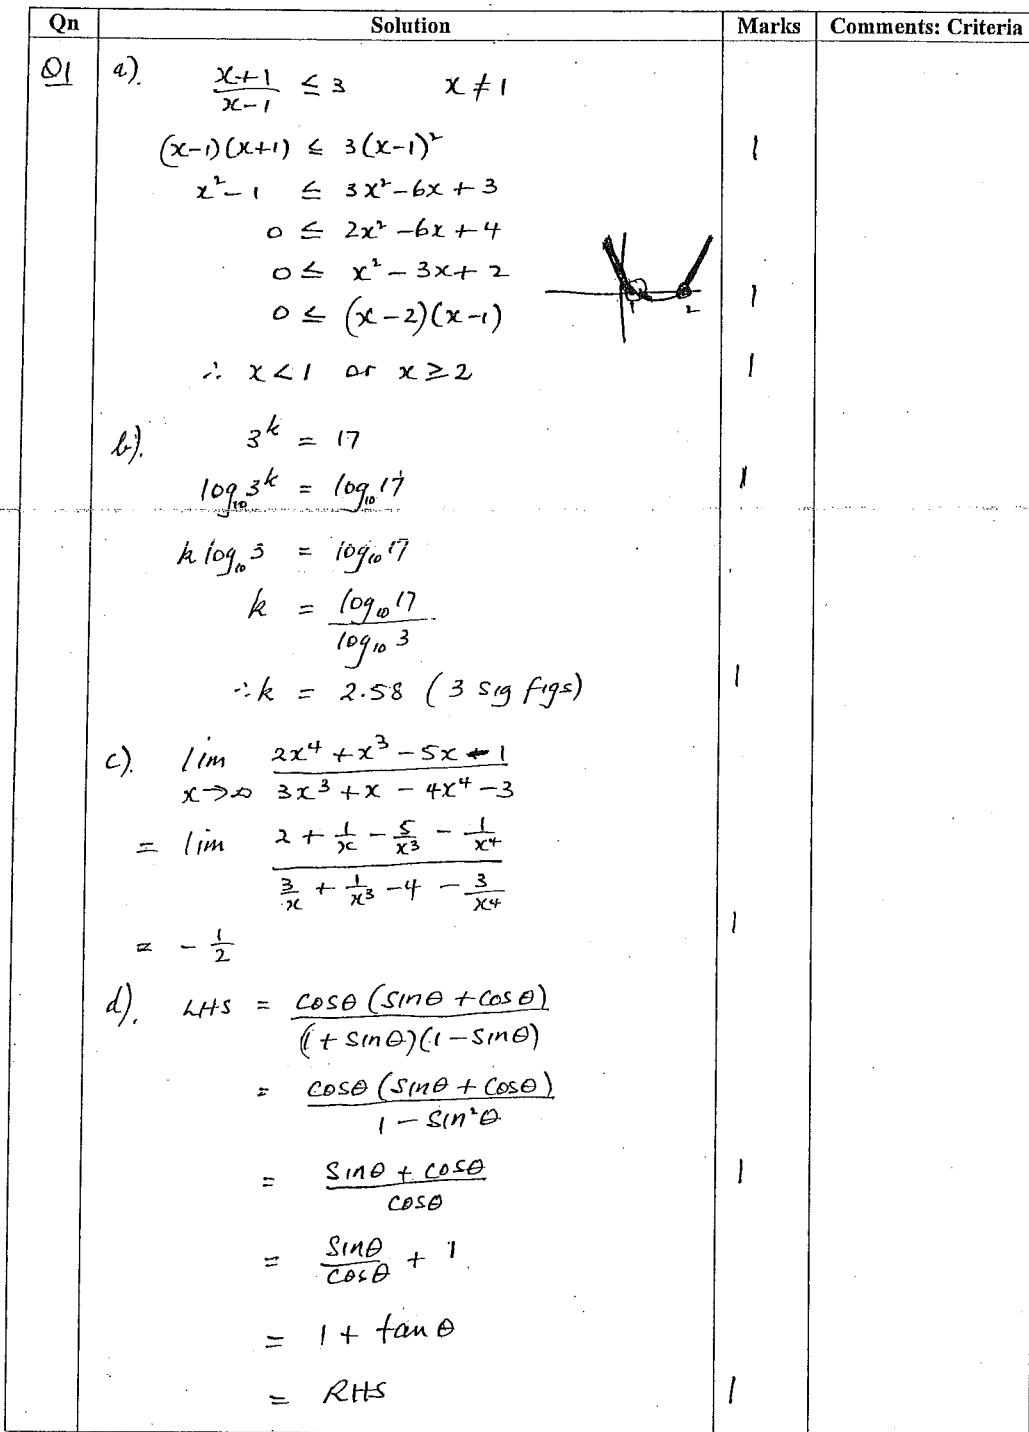 Qn Solution Marks Comments: Criteria
Q1 a). x+1 / x-1 ≤ 3 x ≠ 1
(x-1)(x+1) ≤ 3(x-1)² 1
x²-1 ≤ 3x²-6x+3
0 ≤ 2x²-6x+4
0 ≤ x²-3x+2
0 ≤ (x-2)(x-1) 1 2 1
∴ x<1 or x≥2 1
b). 3^k = 17
log₁₀3^k = log₁₀17 1
k log₁₀3 = log₁₀17
k = log₁₀17 / log₁₀3
∴k = 2.58 (3 sig figs) 1
c). lim x→∞ 2x⁴+x³-5x-1 / 3x³+x-4x⁴-3
= lim 2 + 1/x - 5/x³ - 1/x⁴ / 3/x + 1/x³ - 4 - 3/x⁴
= -1/2 1
d). LHS = cosθ(sinθ+cosθ) / (1+sinθ)(1-sinθ)
= cosθ(sinθ+cosθ) / 1-sin²θ
= sinθ+cosθ / cosθ 1
= sinθ/cosθ + 1
= 1+tanθ
= RHS 1